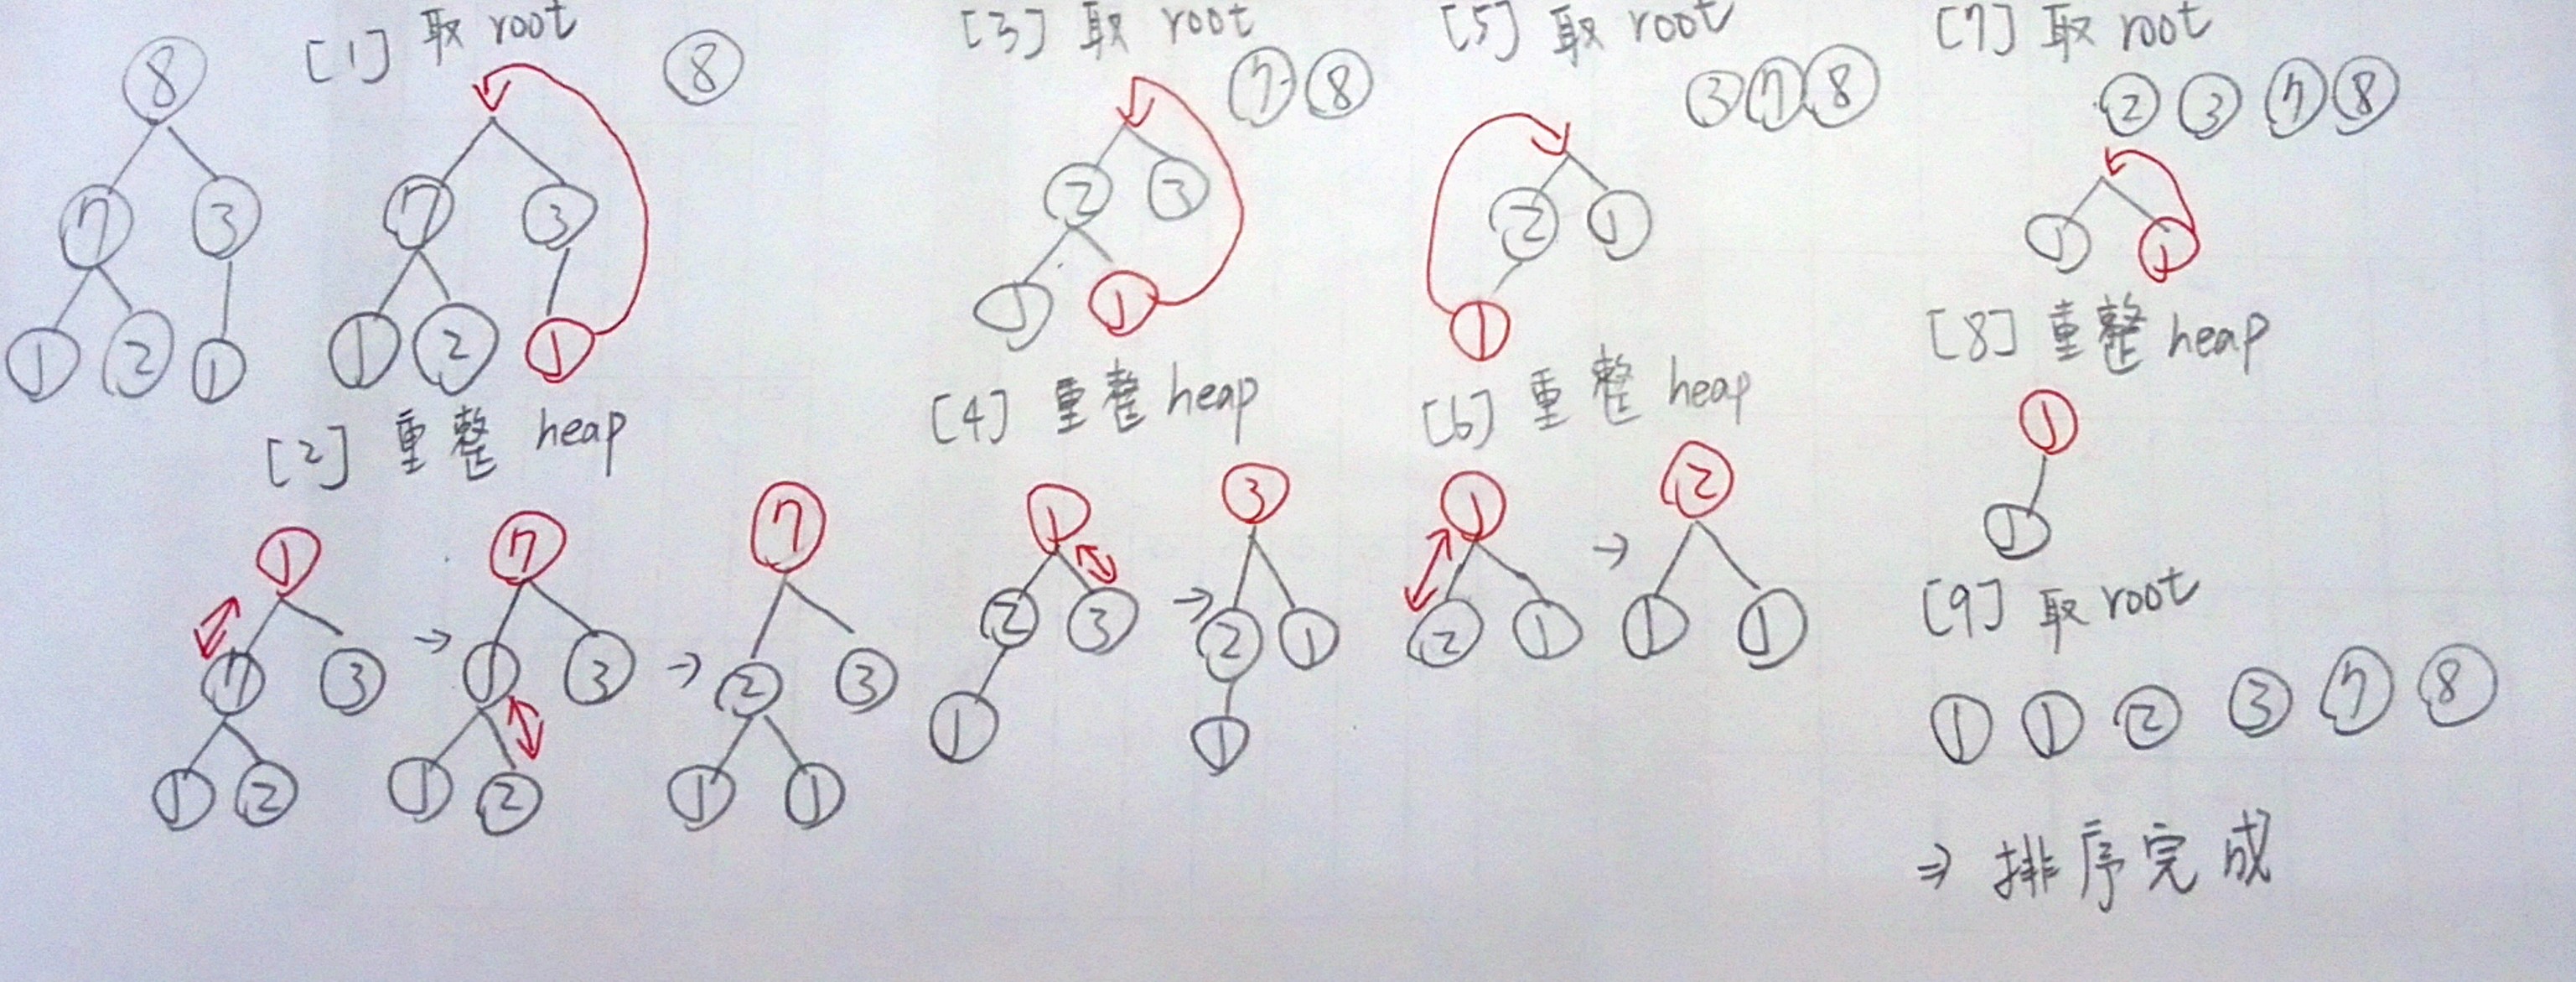 8
7 3
1 2 1
[1] 取 root
8
7 3
1 2 1
[2] 重整 heap
1
7 3
1 2
→
7
1 3
1 2
→
7
2 3
1 1
[3] 取 root
7 8
2 3
1 1
[4] 重整 heap
1
2 3
1
→
3
2 1
1
[5] 取 root
3 7 8
2 1
1
[6] 重整 heap
1
2 1
→
2
1 1
[7] 取 root
2 3 7 8
1 1
[8] 重整 heap
1
1
[9] 取 root
1 1 2 3 7 8
⇒ 排序完成